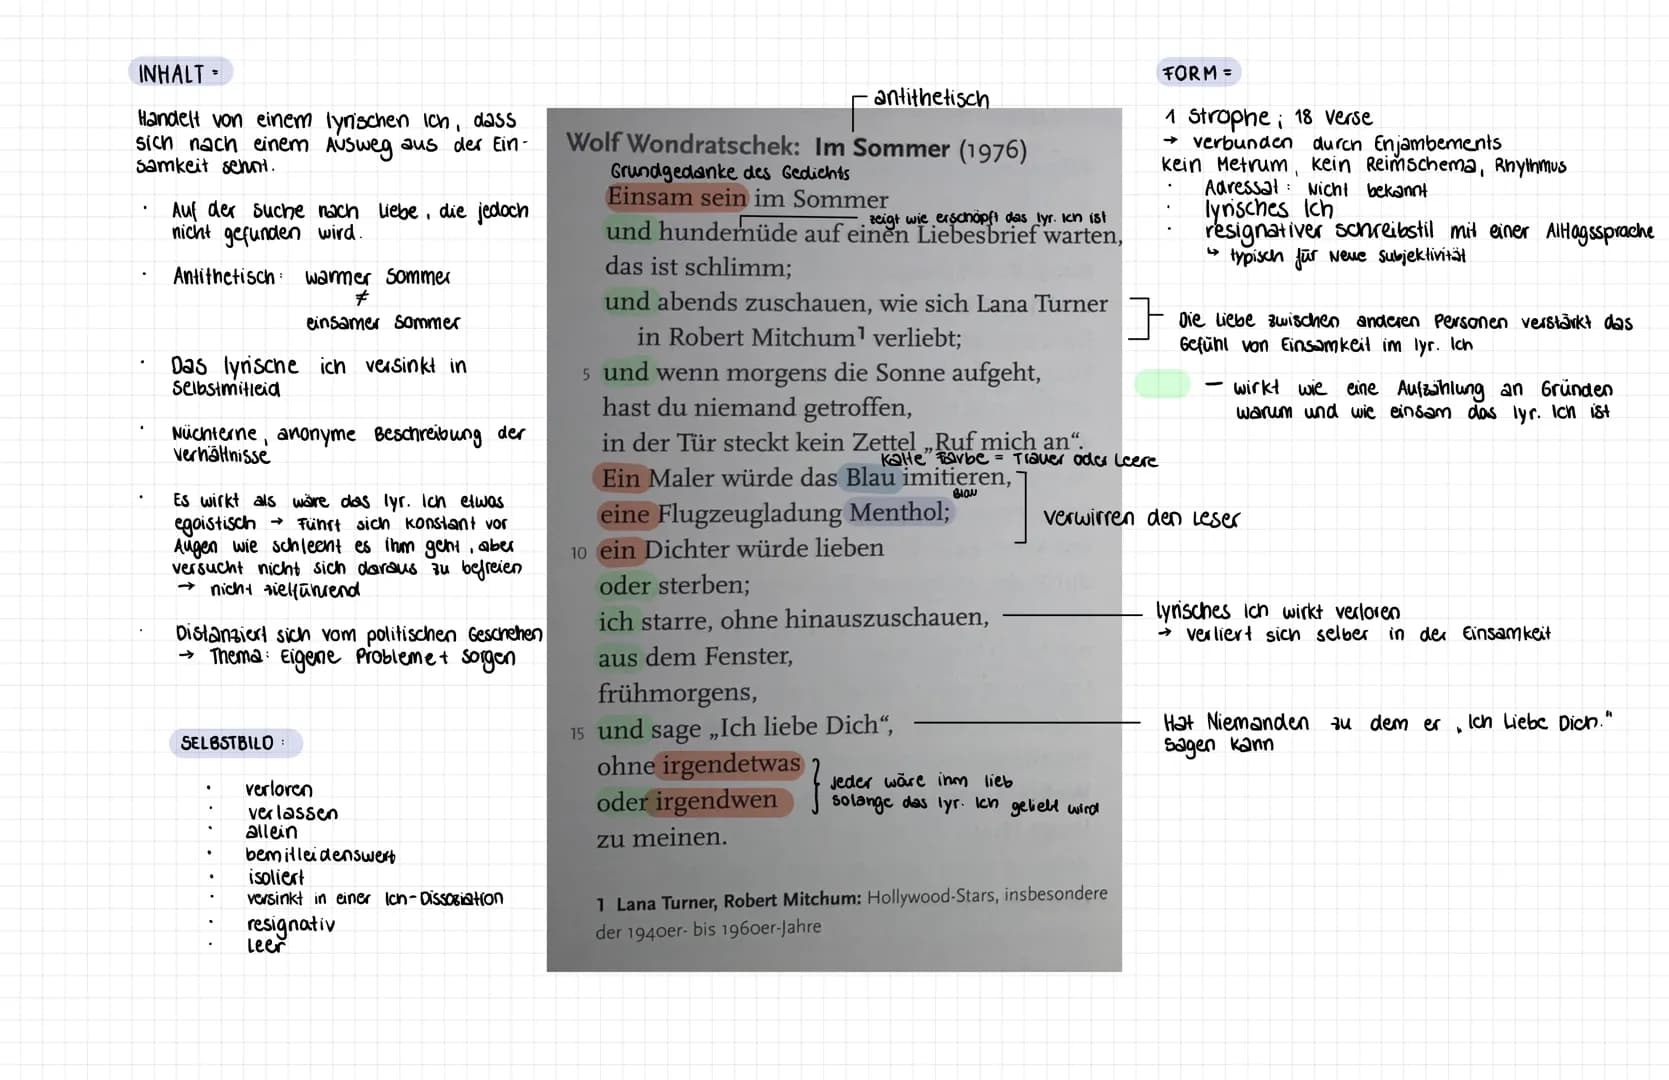 INHALT =
Handelt von einem lyrischen Ich, dass
sich nach einem Ausweg aus der Ein-
samkeit sehnt.
· Auf der Suche nach Liebe, die jedoch
nicht gefunden wird.
· Antithetisch: warmer Sommer
≠
einsamer Sommer
· Das lyrische ich versinkt in
Selbstmitleid
· Nüchterne, anonyme Beschreibung der
Verhältnisse
· Es wirkt als wäre das lyr. Ich etwas
egoistisch → Führt sich konstant vor
Augen wie schlecht es ihm geht, aber
versucht nicht sich daraus zu befreien
→ nicht zielführend
· Distanziert sich vom politischen Geschehen
→ Thema: Eigene Probleme + Sorgen
SELBSTBILD :
· verloren
· verlassen
· allein
· bemitleidenswert
· isoliert
· versinkt in einer Ich-Dissoziation
· resignativ
· Leer
antithetisch
Wolf Wondratschek: Im Sommer (1976)
Grundgedanke des Gedichts
Einsam sein im Sommer
zeigt wie erschöpft das lyr. Ich ist
und hundemüde auf einen Liebesbrief warten,
das ist schlimm;
und abends zuschauen, wie sich Lana Turner
in Robert Mitchum¹ verliebt;
5 und wenn morgens die Sonne aufgeht,
hast du niemand getroffen,
in der Tür steckt kein Zettel „Ruf mich an“.
Kalte Farbe = Trauer oder Leere
Ein Maler würde das Blau imitieren,
Blau
eine Flugzeugladung Menthol;
verwirren den Leser
10 ein Dichter würde lieben
oder sterben;
ich starre, ohne hinauszuschauen,
aus dem Fenster,
frühmorgens,
15 und sage „Ich liebe Dich“,
ohne irgendetwas
oder irgendwen
Jeder wäre ihm lieb
solange das lyr. Ich geliebt wird
zu meinen.
1 Lana Turner, Robert Mitchum: Hollywood-Stars, insbesondere
der 1940er- bis 1960er-Jahre
FORM =
1 Strophe ; 18 Verse
→ verbunden durch Enjambements
kein Metrum, kein Reimschema, Rhythmus
· Adressat : Nicht bekannt
· lyrisches Ich
· resignativer schreibstil mit einer Alltagssprache
↳ typisch für Neue Subjektivität
Die Liebe zwischen anderen Personen verstärkt das
Gefühl von Einsamkeit im lyr. Ich
– wirkt wie eine Aufzählung an Gründen
warum und wie einsam das lyr. Ich ist
lyrisches Ich wirkt verloren
→ verliert sich selber in der Einsamkeit
Hat Niemanden zu dem er „Ich Liebe Dich."
sagen kann